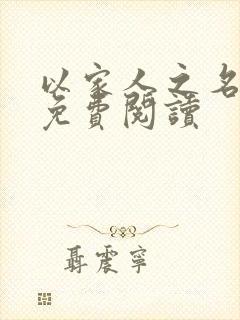 以家人之名
免費閱讀
聶震寧